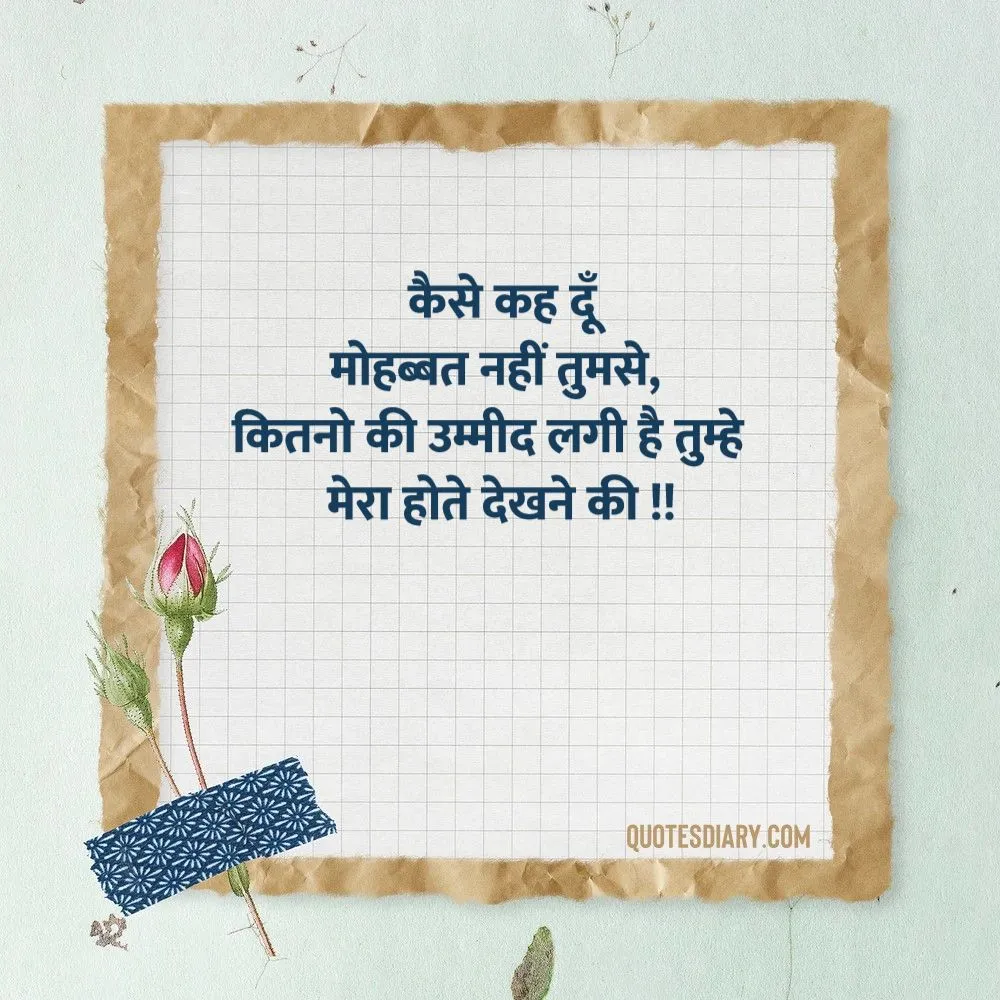 कैसे कह दूँ
मोहब्बत नहीं तुमसे,
कितनो की उम्मीद लगी है तुम्हे
मेरा होते देखने की !!
QUOTESDIARY.COM